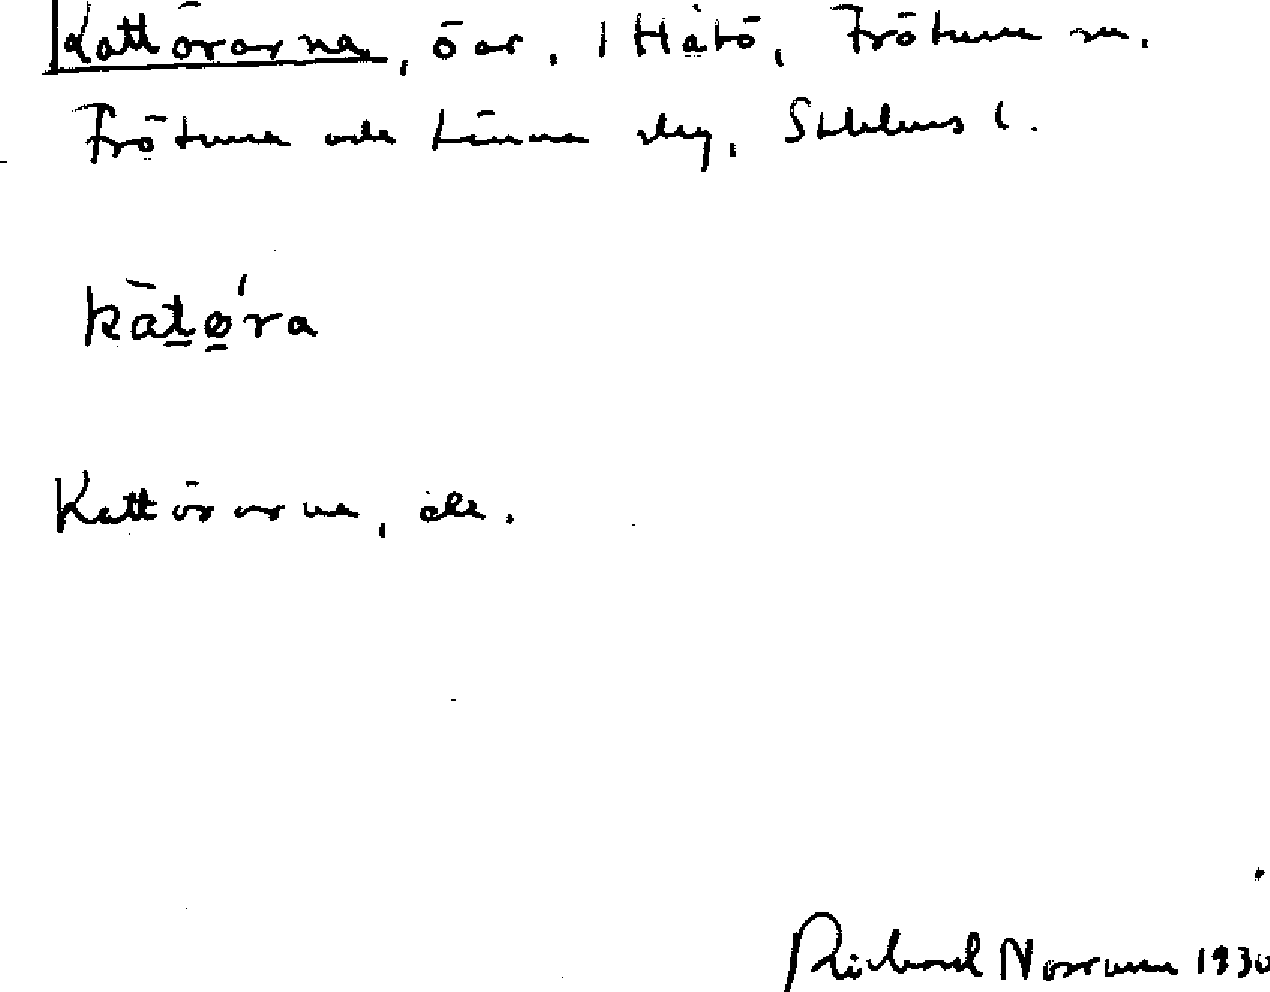 Kattörarna, öar, i Håtö, Frötuna sn.
Frötuna och Länna skg, Sthlms l.
kat̲ø̲ra
Kattörarna, öar.
Rickard Norrman 1930